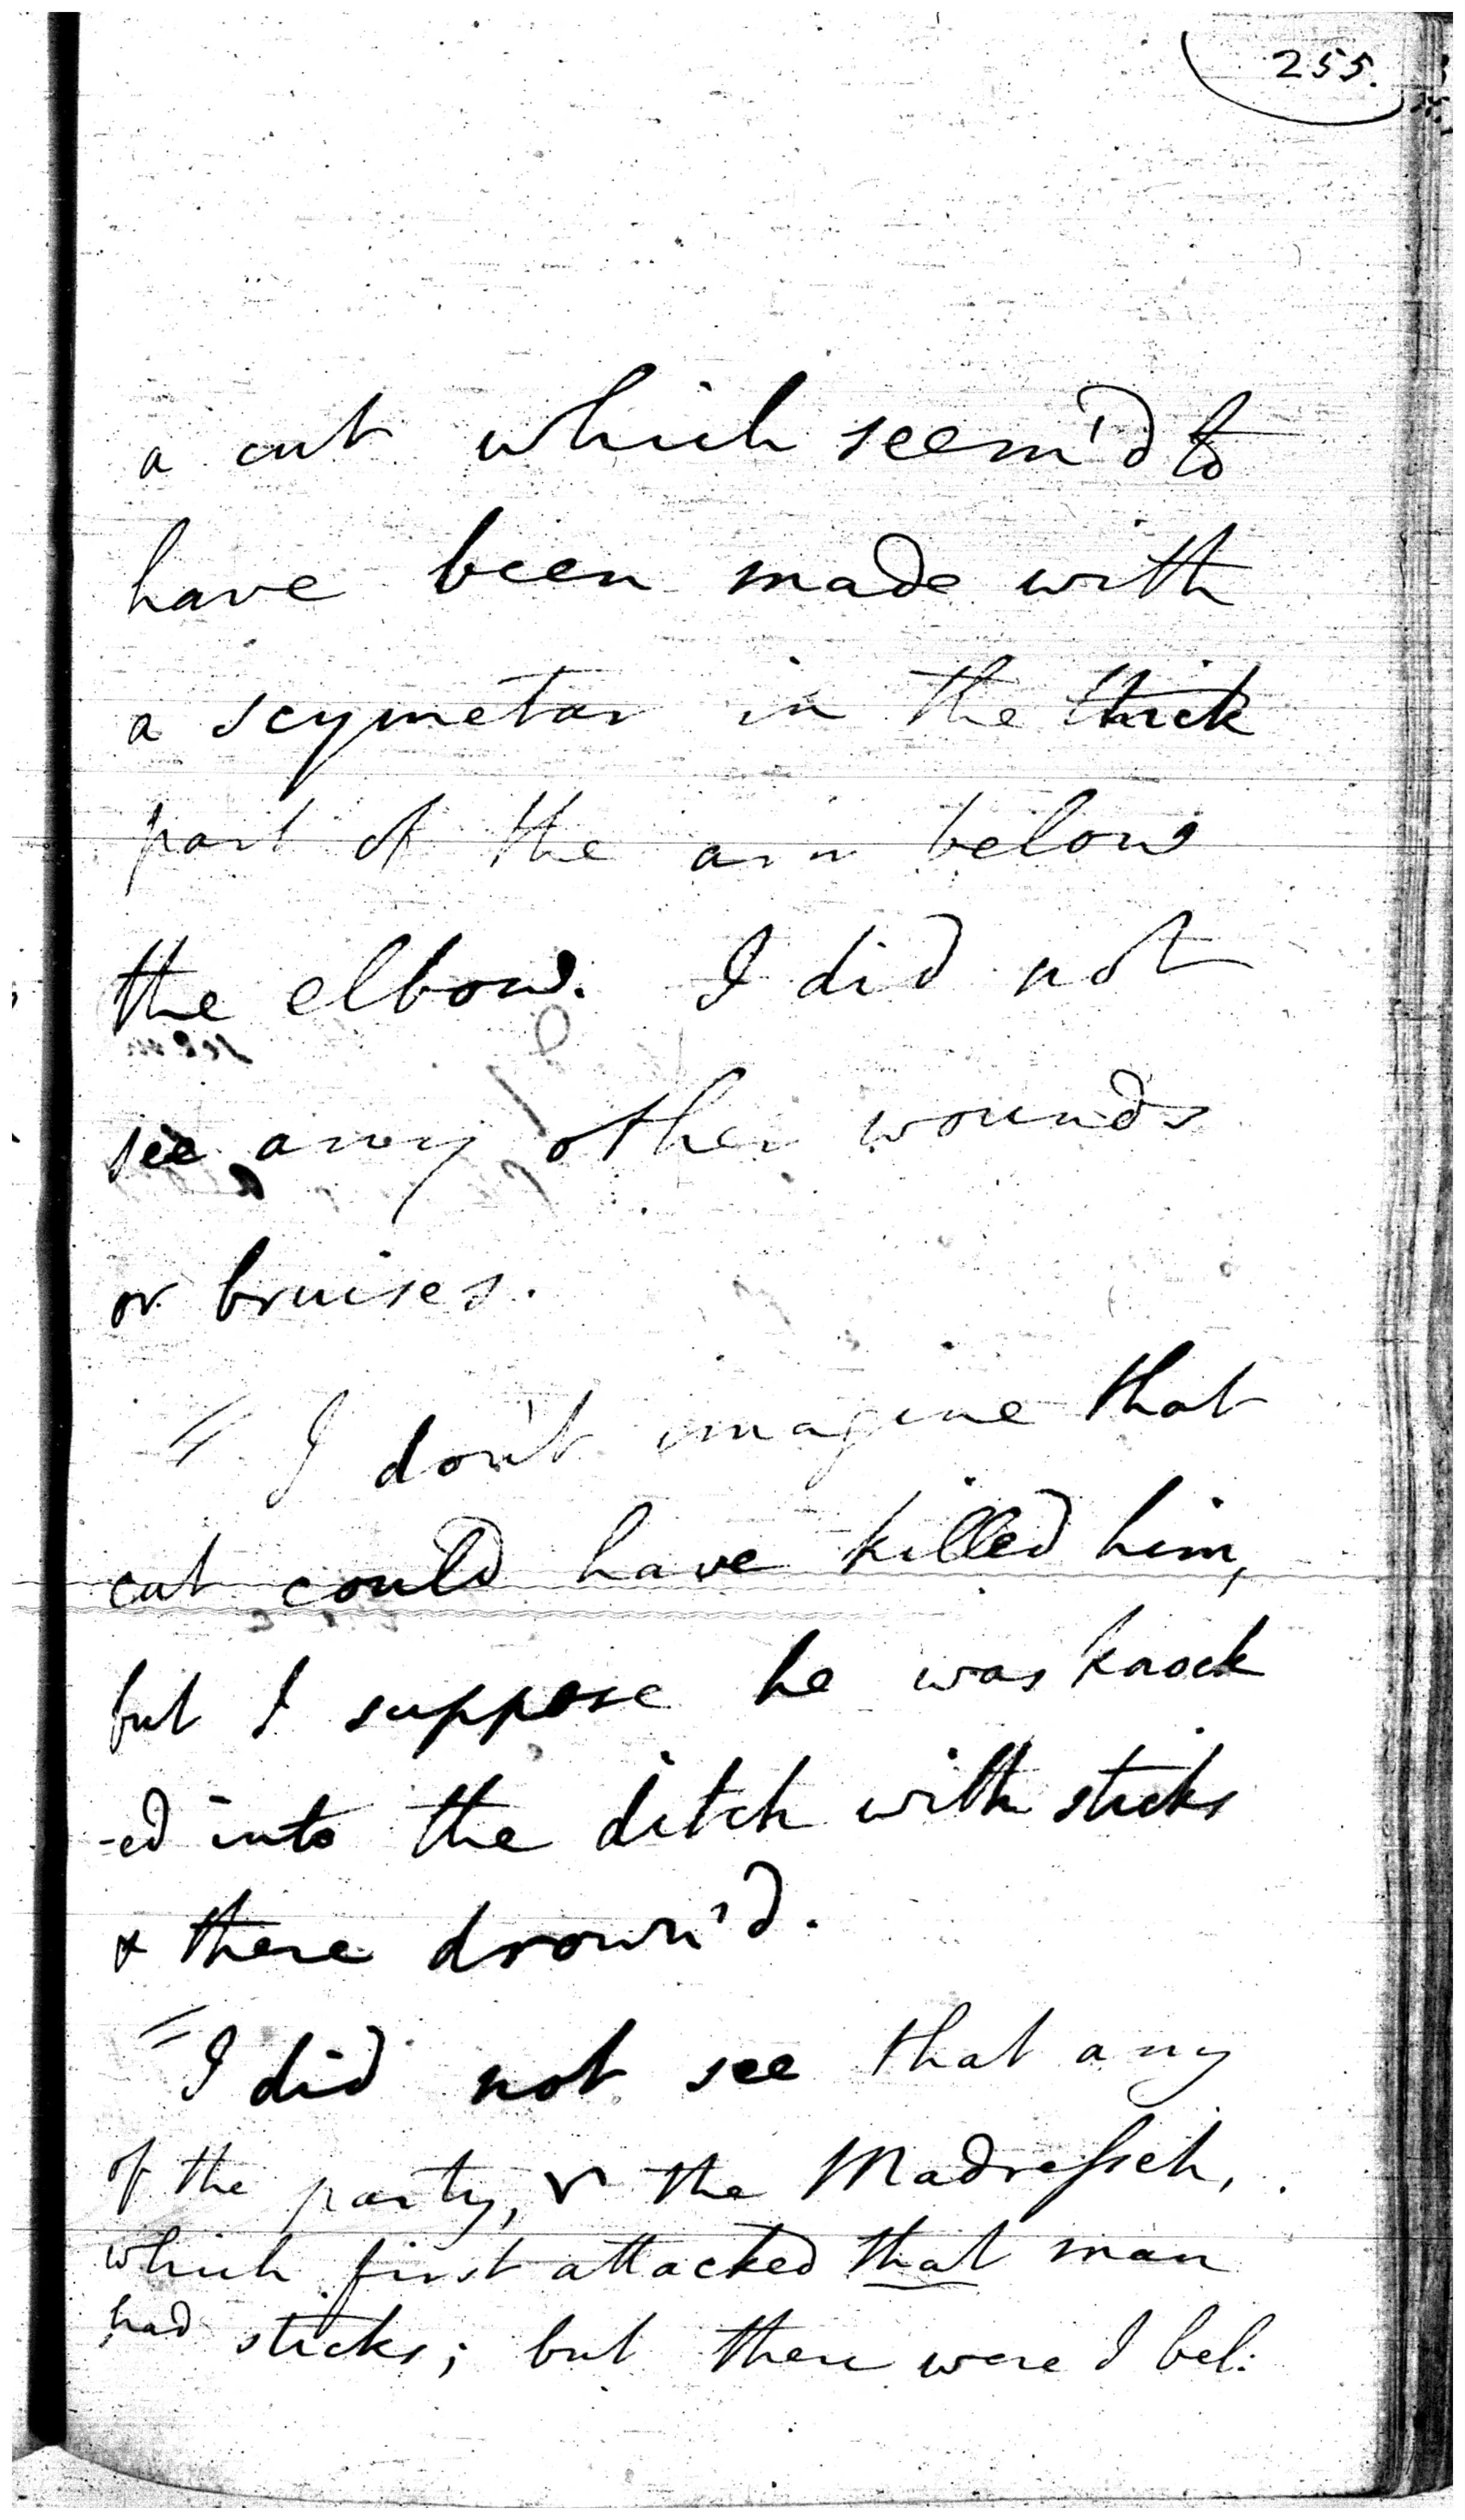 255.
a cut which seem'd to
have been made with
a scymetar in the thick
part of the arm below
the elbow. I did not
see any other wounds
or bruises.
" I don't imagine that
cut could have killed him,
but I suppose he was knock
-ed into the ditch with sticks
& there drown'd.
" I did not see that any
of the party, the Madresseh,
which first attacked that man
had sticks; but there were I bel: